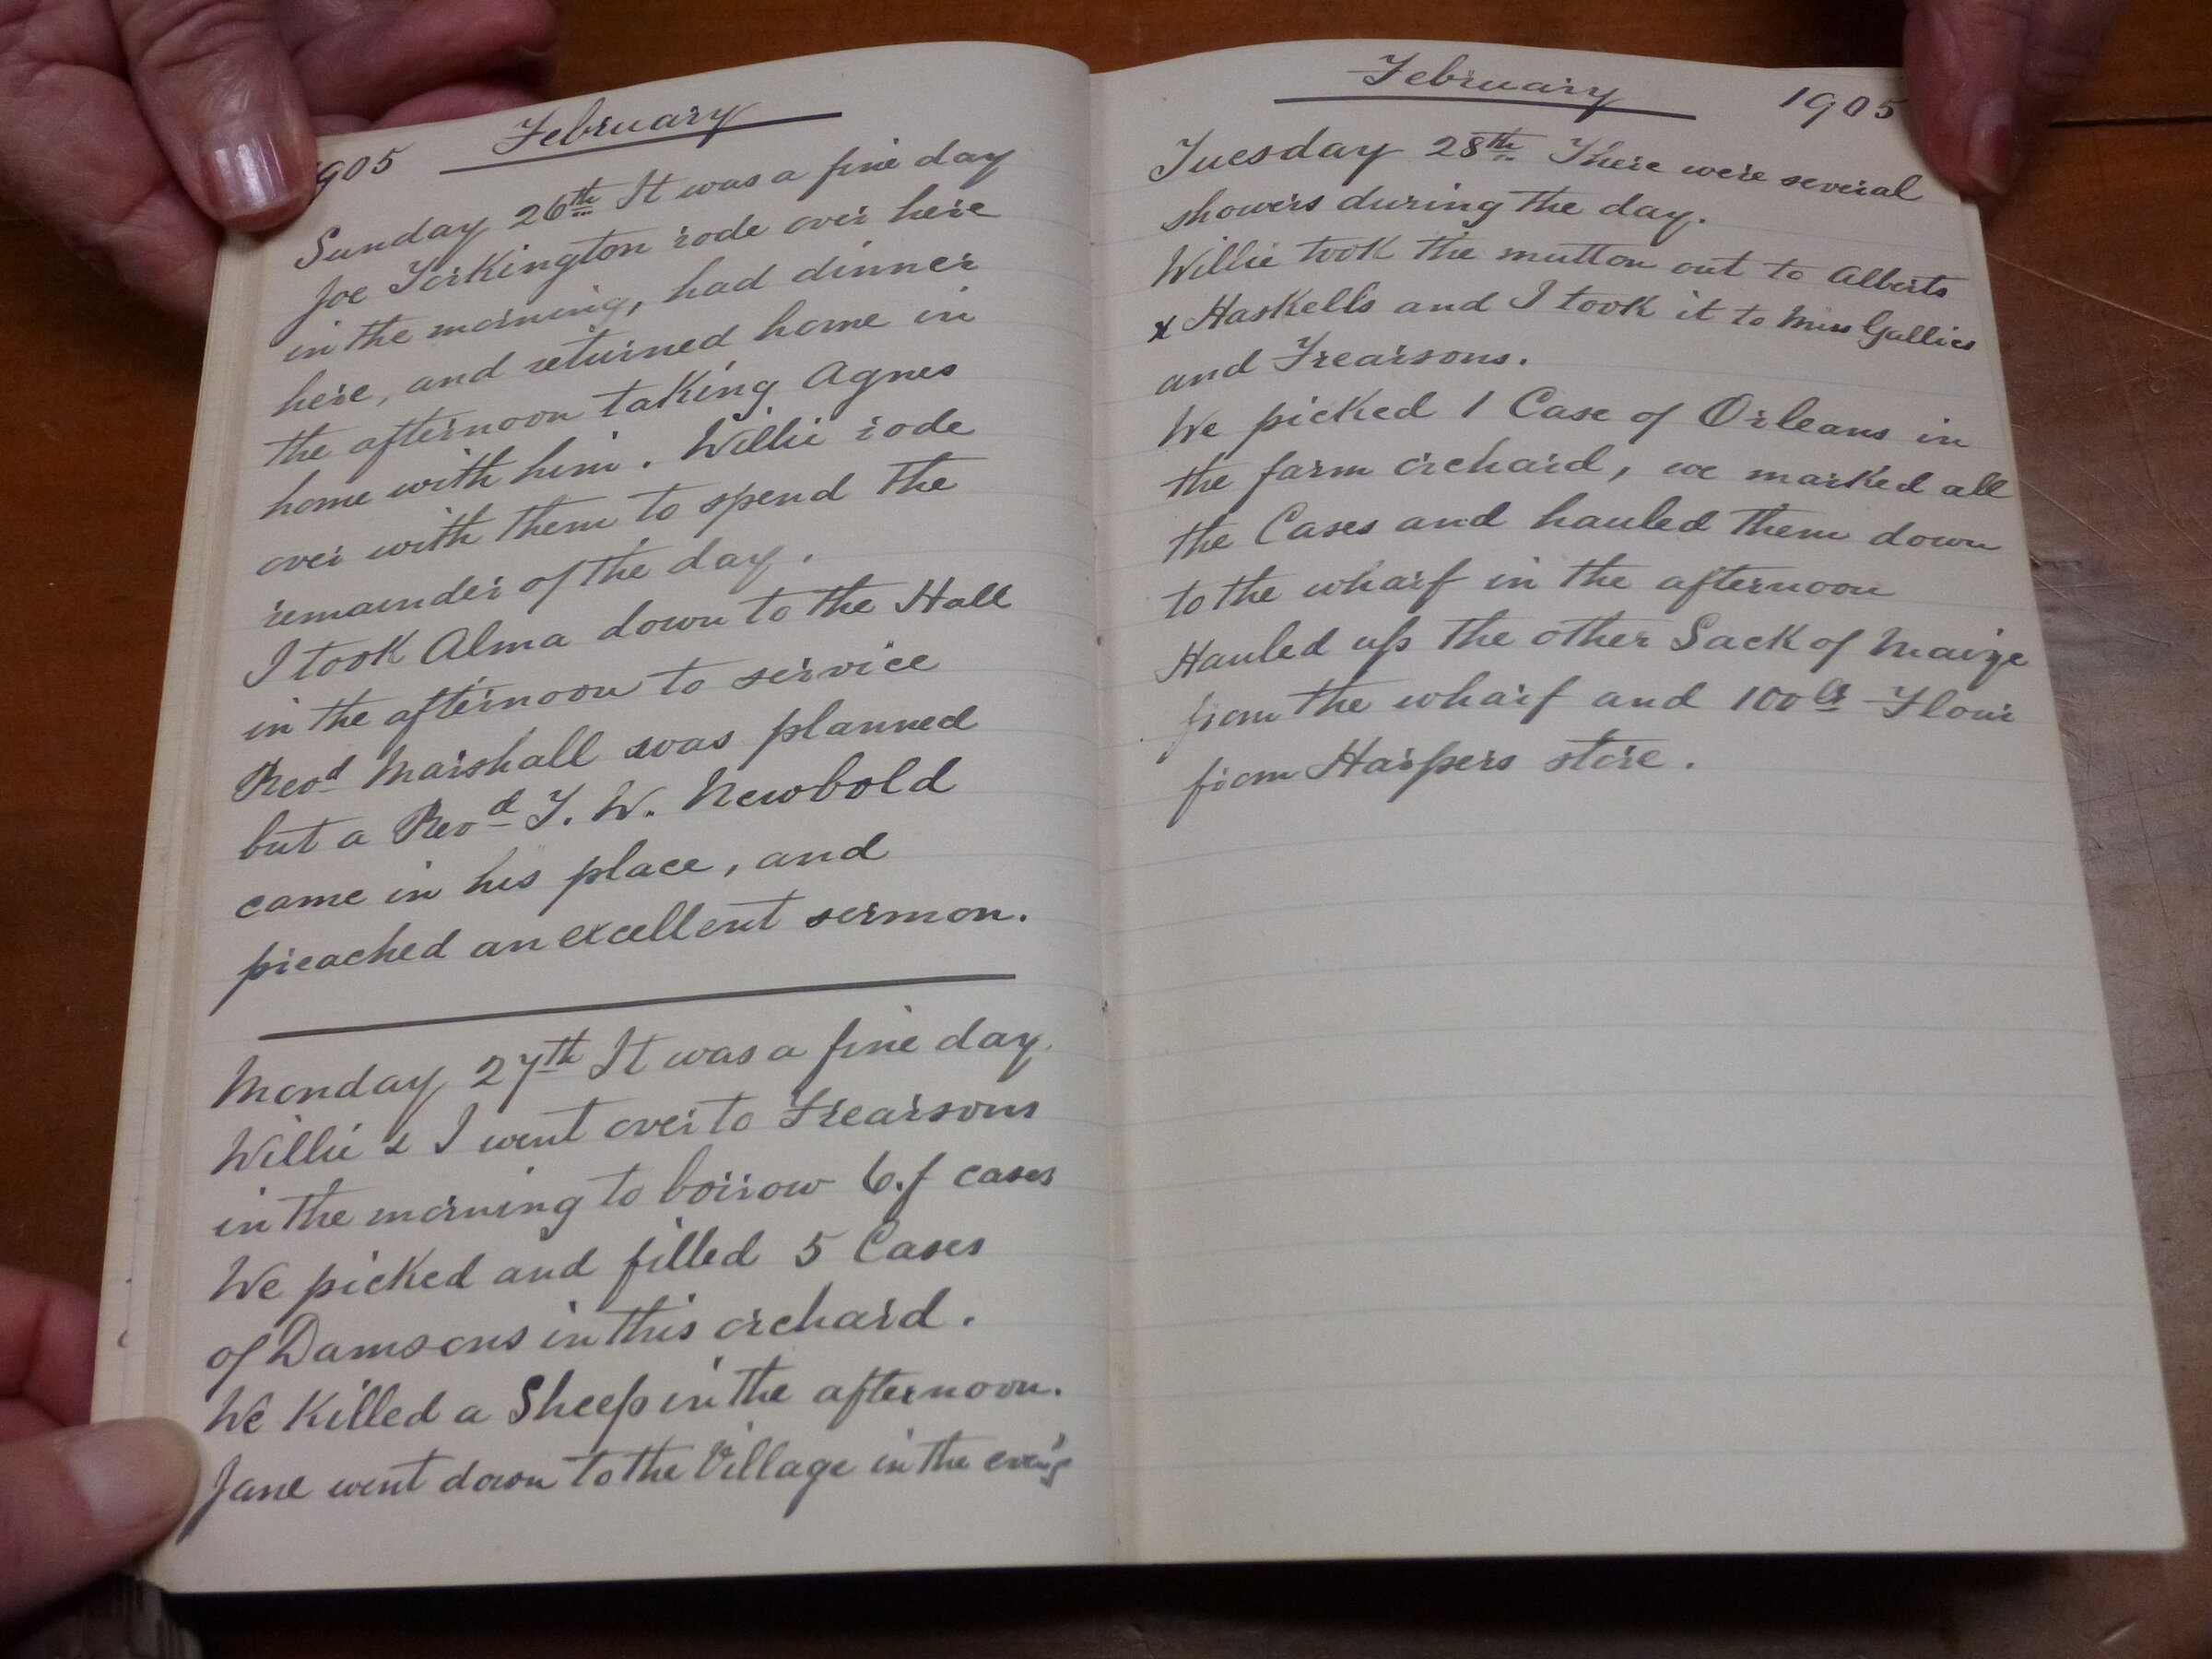 February
1905
Sunday 26th It was a fine day
Joe Torkington rode over here
in the morning, had dinner
here, and returned home in
the afternoon taking Agnes
home with him. Willie rode
over with them to spend the
remainder of the day.
I took Alma down to the Hall
in the afternoon to service
Revd Marshall was planned
but a Revd T. W. Newbold
came in his place, and
preached an excellent sermon.
Monday 27th It was a fine day.
Willie & I went over to Frearsons
in the morning to borrow 6.f cases
We picked and filled 5 Cases
of Damsons in this orchard.
We Killed a Sheep in the afternoon.
Jane went down to the Village in the even'g
February
1905
Tuesday 28th There were several
showers during the day.
Willie took the mutton out to Alberts
& Haskells and I took it to Miss Gallies
and Frearsons.
We picked 1 Case of Orleans in
the farm orchard, we marked all
the Cases and hauled them down
to the wharf in the afternoon
Hauled up the other Sack of Maize
from the wharf and 100 lbs Flour
from Harpers store.